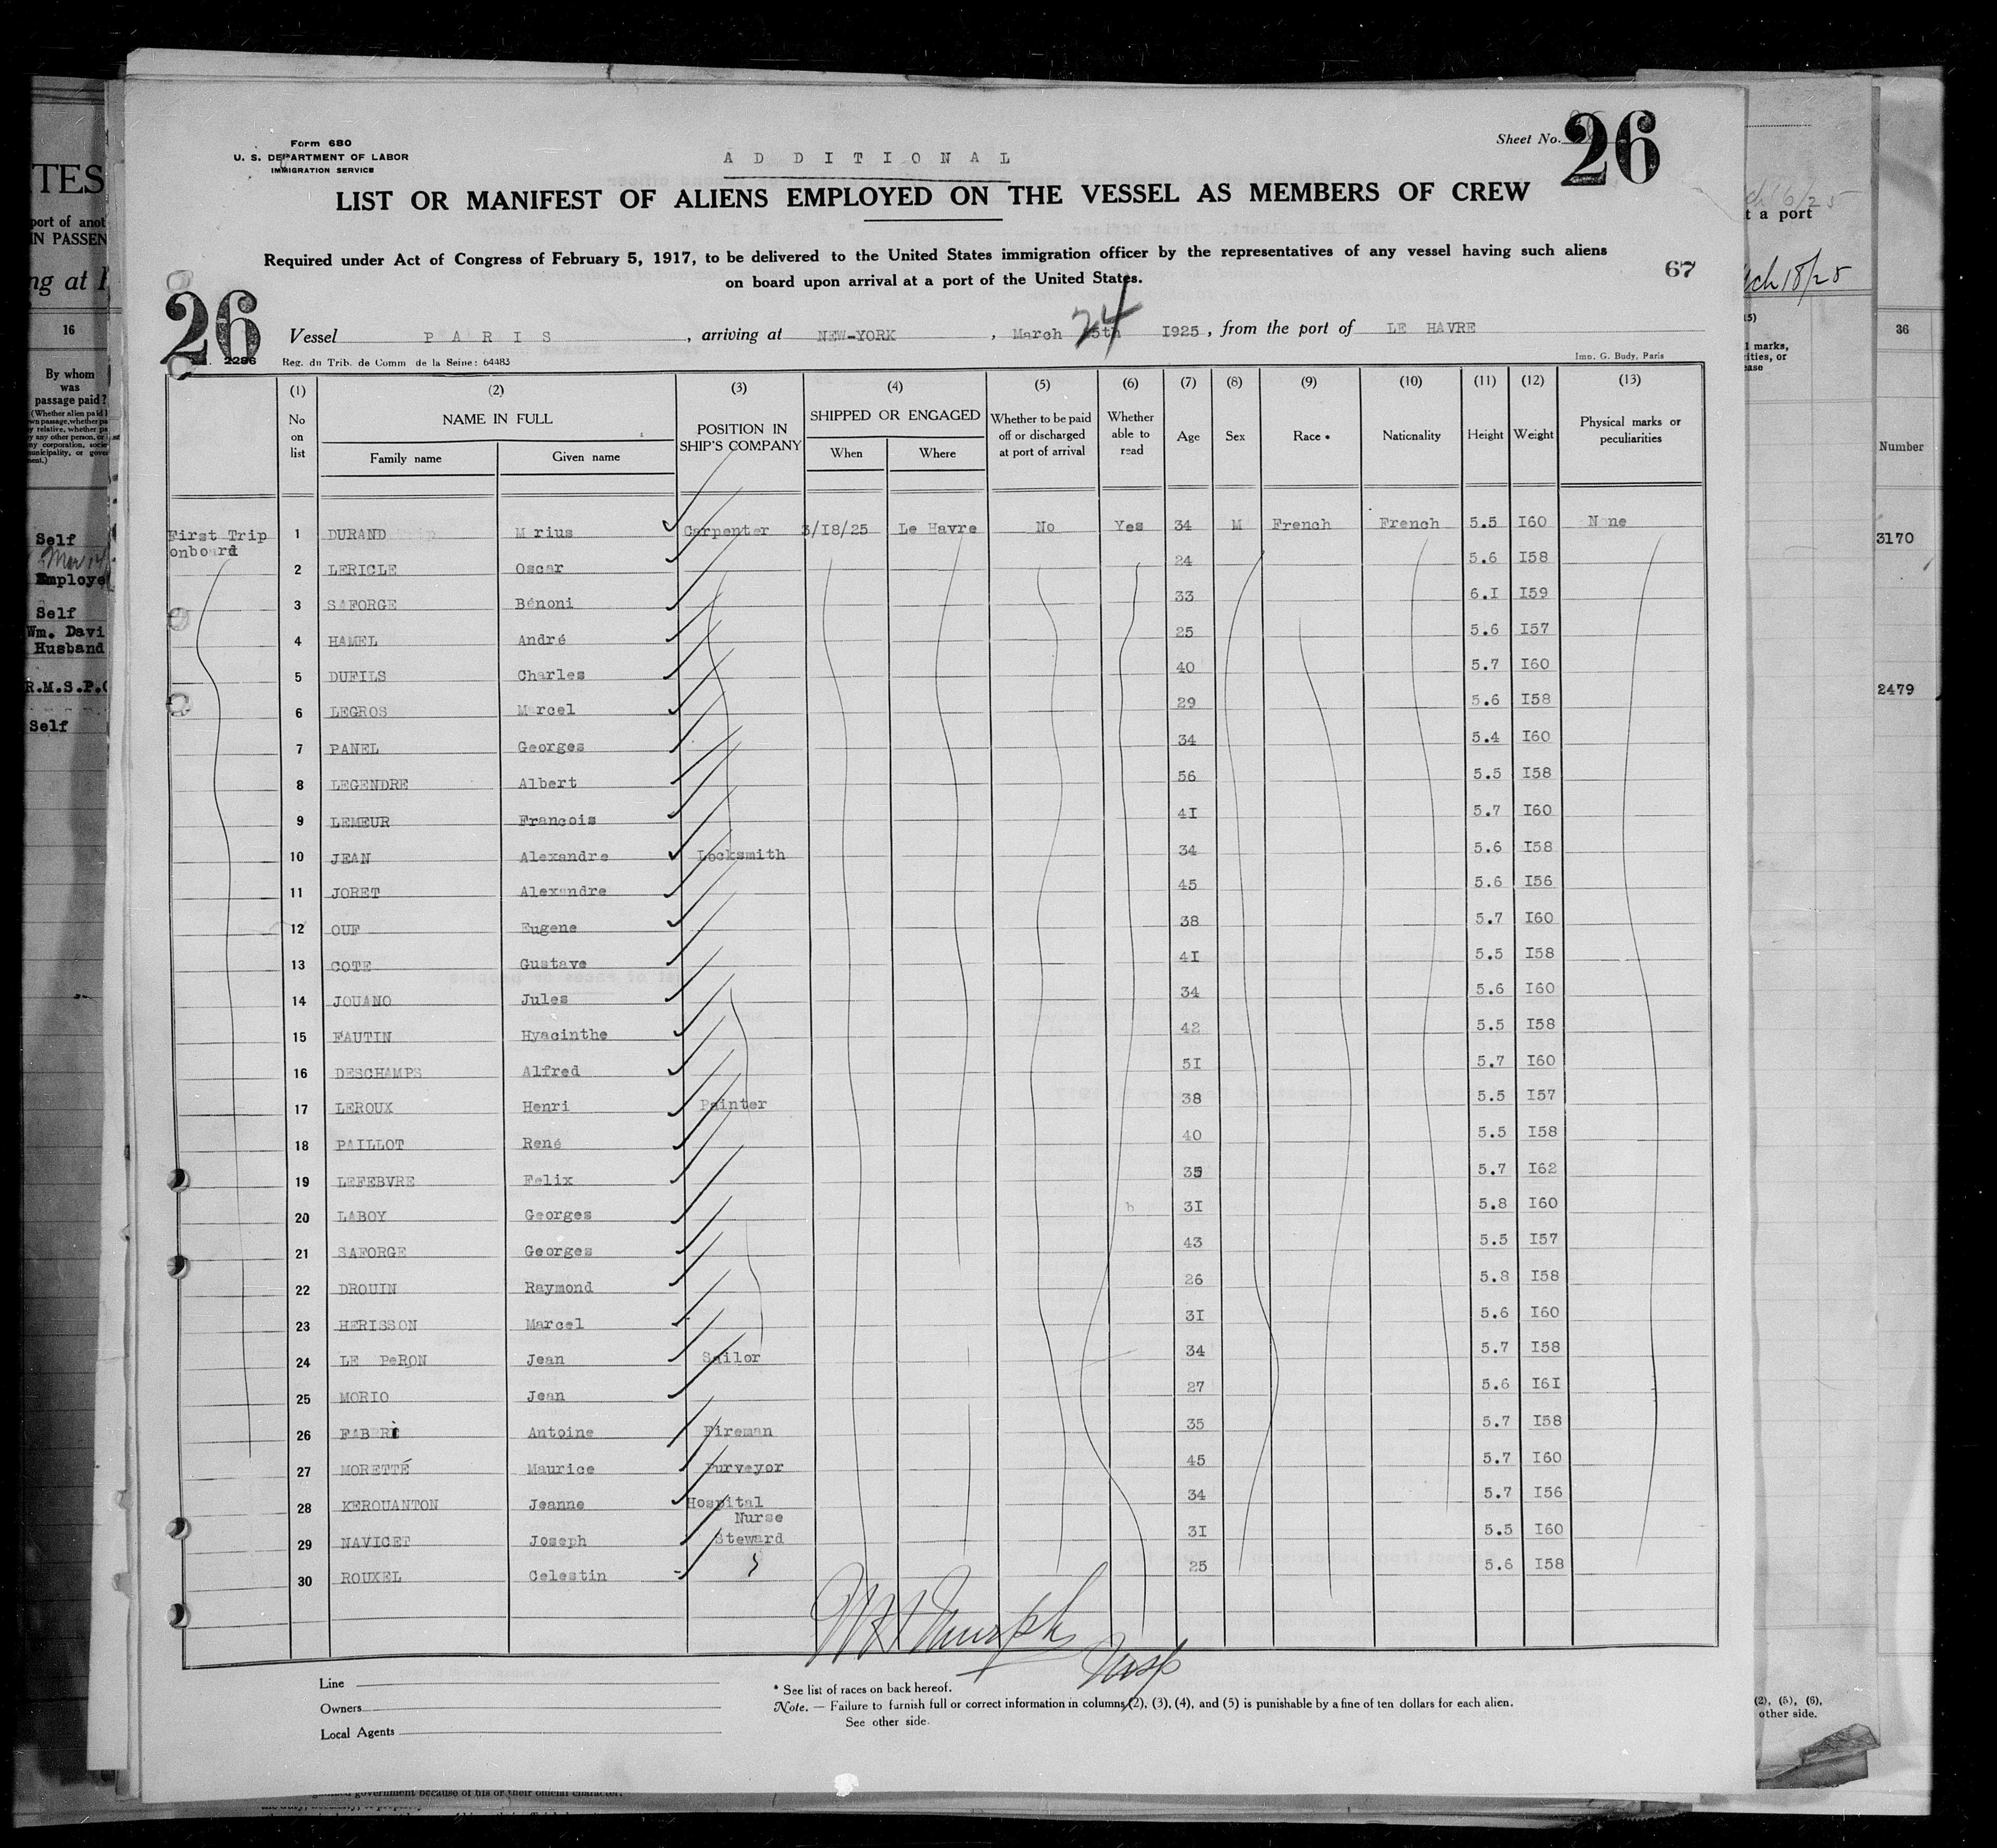 Form 680
U. S. DEPARTMENT OF LABOR
IMMIGRATION SERVICE
Sheet No. 26
A D D I T I O N A L
LIST OR MANIFEST OF ALIENS EMPLOYED ON THE VESSEL AS MEMBERS OF CREW
Required under Act of Congress of February 5, 1917, to be delivered to the United States immigration officer by the representatives of any vessel having such aliens
on board upon arrival at a port of the United States.
67
26
Vessel P A R I S , arriving at NEW-YORK , March 24 I925 , from the port of LE HAVRE
2286 Reg. du Trib. de Comm de la Seine : 64483 Imp. G. Budy, Paris
(1) (2) (3) (4) (5) (6) (7) (8) (9) (10) (11) (12) (13)
No on list NAME IN FULL POSITION IN SHIP'S COMPANY SHIPPED OR ENGAGED Whether to be paid off or discharged at port of arrival Whether able to read Age Sex Race * Nationality Height Weight Physical marks or peculiarities
Family name Given name When Where
First Trip onboard 1 DURAND M rius Carpenter 3/I8/25 Le Havre No Yes 34 M French French 5.5 I60 None
2 LERICLE Oscar 24 5.6 I58
3 SAFORGE Bénoni 33 6.I I59
4 HAMEL André 25 5.6 I57
5 DUFILS Charles 40 5.7 I60
6 LEGROS Marcel 29 5.6 I58
7 PANEL Georges 34 5.4 I60
8 LEGENDRE Albert 56 5.5 I58
9 LEMEUR François 4I 5.7 I60
10 JEAN Alexandre Locksmith 34 5.6 I58
11 JORET Alexandre 45 5.6 I56
12 OUF Eugene 38 5.7 I60
13 COTE Gustave 4I 5.5 I58
14 JOUANO Jules 34 5.6 I60
15 FAUTIN Hyacinthe 42 5.5 I58
16 DESCHAMPS Alfred 5I 5.7 I60
17 LEROUX Henri Painter 38 5.5 I57
18 PAILLOT René 40 5.5 I58
19 LEFEBVRE Felix 35 5.7 I62
20 LABOY Georges 3I 5.8 I60
21 SAFORGE Georges 43 5.5 I57
22 DROUIN Raymond 26 5.8 I58
23 HERISSON Marcel 3I 5.6 I60
24 LE PeRON Jean Sailor 34 5.7 I58
25 MORIO Jean 27 5.6 I6I
26 FABRI Antoine Fireman 35 5.7 I58
27 MORETTÉ Maurice Purveyor 45 5.7 I60
28 KEROUANTON Jeanne Hospital Nurse 34 5.7 I56
29 NAVICET Joseph Steward 3I 5.5 I60
30 ROUXEL Celestin 25 5.6 I58
Insp
Line
Owners
Local Agents
* See list of races on back hereof.
Note. — Failure to furnish full or correct information in columns (2), (3), (4), and (5) is punishable by a fine of ten dollars for each alien.
See other side.
TES
port of anot
IN PASSEN
ng at
16
By whom
was
passage paid?
Self
Employe
Self
Wm. Davi
Husband
R.M.S.P.
Self
t a port
36
Number
3170
2479
(2), (5), (6),
other side.